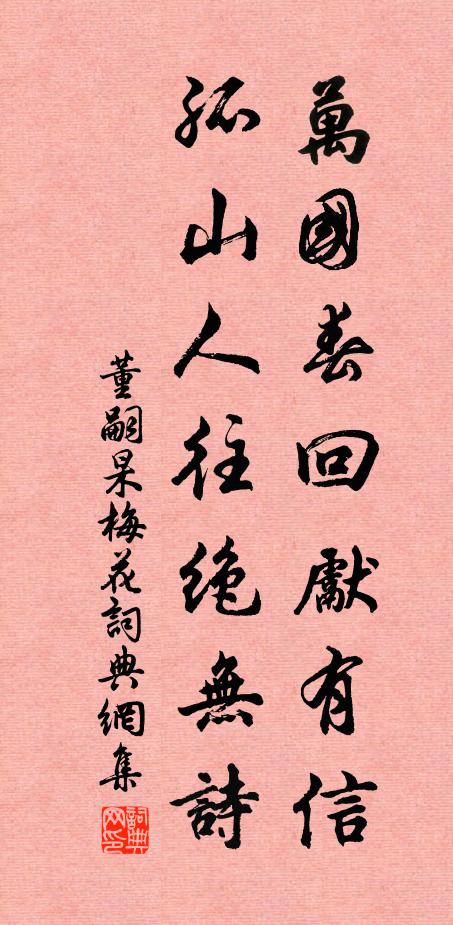 萬國春回獻有信
孤山人往絶無詩
董嗣杲梅花詞典網集
詞典網印